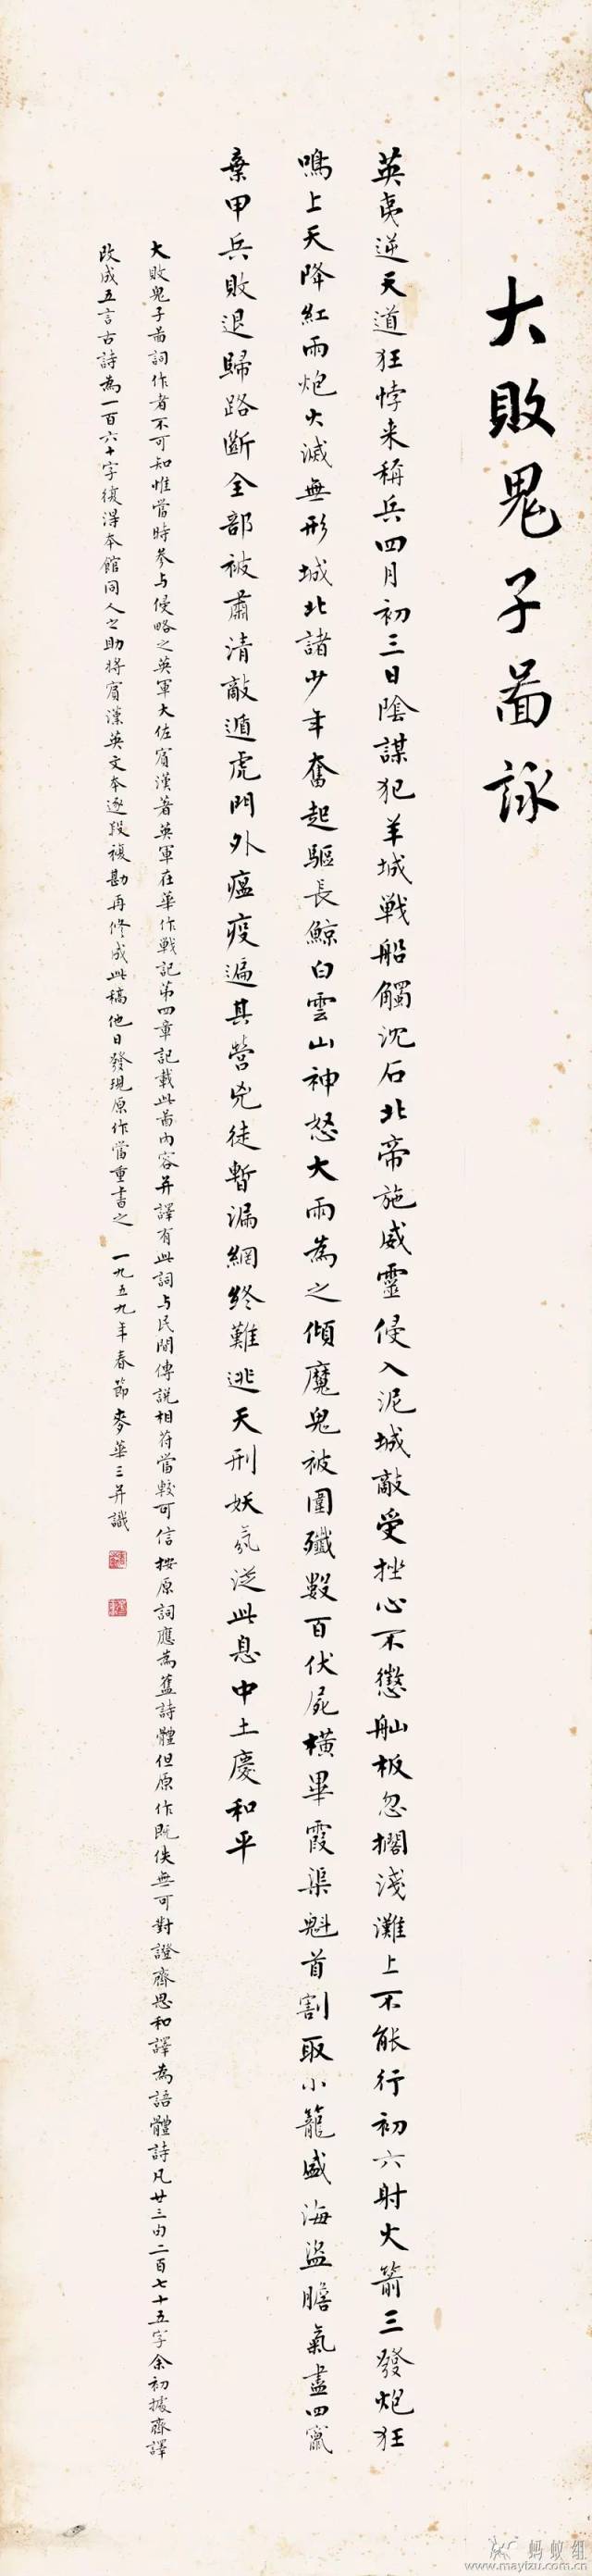 大敗鬼子圖詠
英夷逆天道狂悖来稱兵四月初三日陰謀犯羊城戰船觸沈石北帝施威靈侵入泥城敵受挫心不懲舢板忽擱淺灘上不能行初六射火箭三發炮狂
鳴上天降紅雨炮火滅無形城北諸少年奮起驅長鯨白雲山神怒大雨為之傾魔鬼被圍殲數百伏屍橫畢霞渠魁首割取小籠盛海盜膽氣盡四竄
棄甲兵敗退歸路斷全部被肅清敵遁虎門外瘟疫遍其營兇徒暫漏網終難逃天刑妖氛從此息中土慶和平
大敗鬼子圖詞作者不可知惟當時參与侵略之英軍大佐賓漢著英軍在華作戰記第四章記載此圖內容并譯有此詞与民間傳說相符當較可信按原詞應為舊詩體但原作既佚無可對證齊思和譯為語體詩凡廿三句二百七十五字余初據齊譯
改成五言古詩為一百六十字復得本館同人之助將賓漢英文本逐段複勘再修成此稿他日發現原作當重書之 一九五九年春節麥華三并識
蚂蚁组
www.mayizu.com.cn